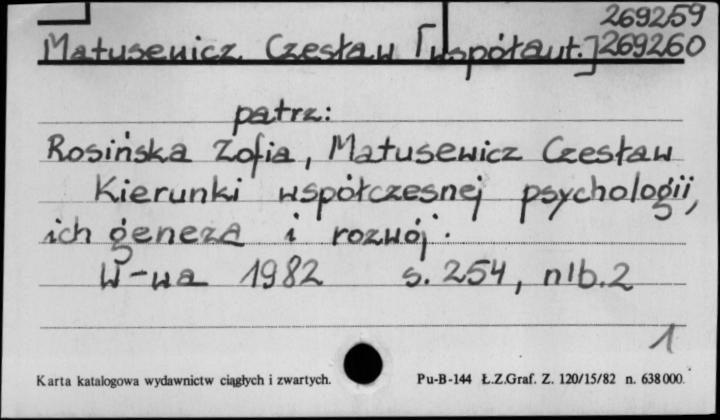 269259
Matusewicz Czesław [współaut.] 269260
patrz:
Rosińska Zofia, Matusewicz Czesław
Kierunki współczesnej psychologii,
ich geneza i rozwój.
W-wa 1982 s. 254, nlb. 2
1
Karta katalogowa wydawnictw ciągłych i zwartych. Pu-B-144 Ł.Z.Graf. Z. 120/15/82 n. 638 000.